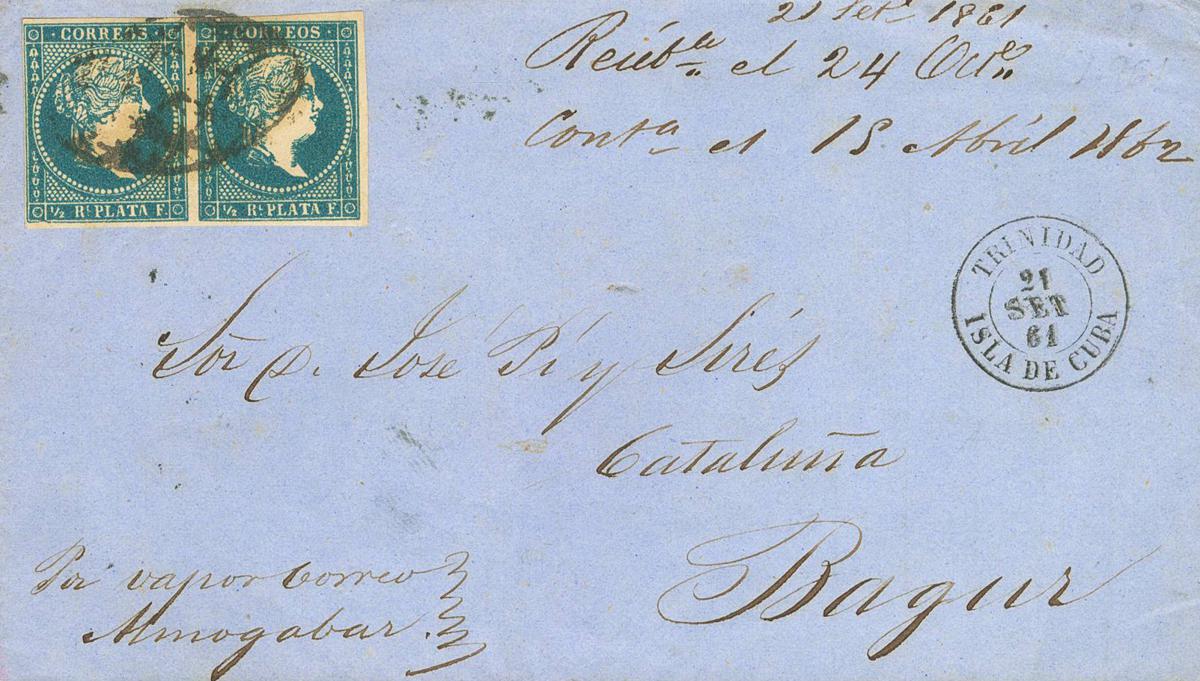 CORREOS
½ Rˡ PLATA F.
CORREOS
½ Rˡ PLATA F.
21 Setᵉ 1861
Recibᵈᵃ el 24 Octᵉ
Contᵃ el 15 Abril 1862
TRINIDAD
21
SET
61
ISLA DE CUBA
Sor D. José Pi y Sirés
Cataluña
Bagur
Por vapor Correo
Almogabar.